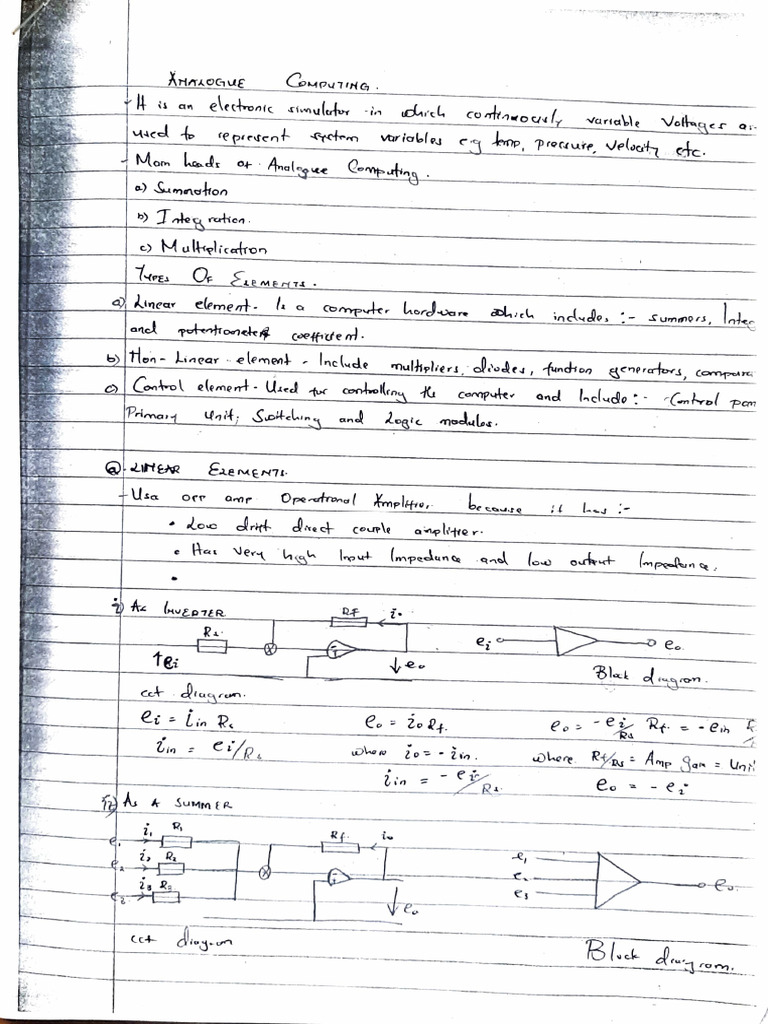 ANALOGUE COMPUTING.
- It is an electronic simulator in which continuously variable Voltages ar
used to represent system variables e.g temp, pressure, velocity etc.
- Main heads of Analogue Computing.
a) Summation
b) Integration.
c) Multiplication
TYPES OF ELEMENTS.
a) Linear element - Is a computer hardware which includes :- summers, Integ
and potentiometers coefficient.
b) Non-Linear element - Include multipliers, diodes, function generators, compara
c) Control element - Used for controlling the computer and Include :- Control pan
Primary unit, Switching and Logic modules.
a) LINEAR ELEMENTS.
- Use opp amp Operational Amplifier because it has :-
• Low drift direct couple amplifier.
• Has very high Input Impedance and low output Impedance.
•
i) As INVERTER
Rf i₀
Rs
↑ei
↓e₀
ei e₀
Block diagram.
cct diagram.
ei = iin Rs e₀ = i₀ Rf. e₀ = -ei/Rs Rf = -ein R
iin = ei/Rs where i₀ = -iin. where Rf/Rs = Amp gain = Uni
iin = -ei/Rs e₀ = -ei
ii) AS A SUMMER
e₁ i₁ R₁ Rf i₀
e₂ i₂ R₂
e₃ i₃ R₃
↓e₀
e₁
e₂ e₀
e₃
cct diagram
Block diagram.